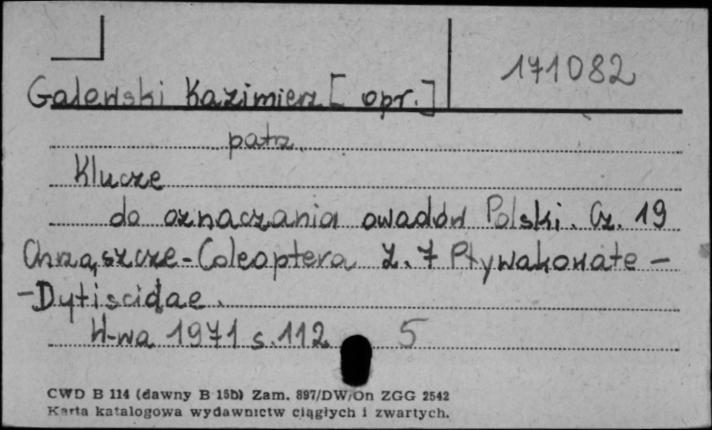 171082
Galewski Kazimierz [opr.]
patrz
Klucze
do oznaczania owadów Polski. Cz. 19
Chrząszcze - Coleoptera Z. 7 Pływakowate -
- Dytiscidae.
W-wa 1971 s. 112 5
CWD B 114 (dawny B 15b) Zam. 897/DW/On ZGG 2542
Karta katalogowa wydawnictw ciągłych i zwartych.